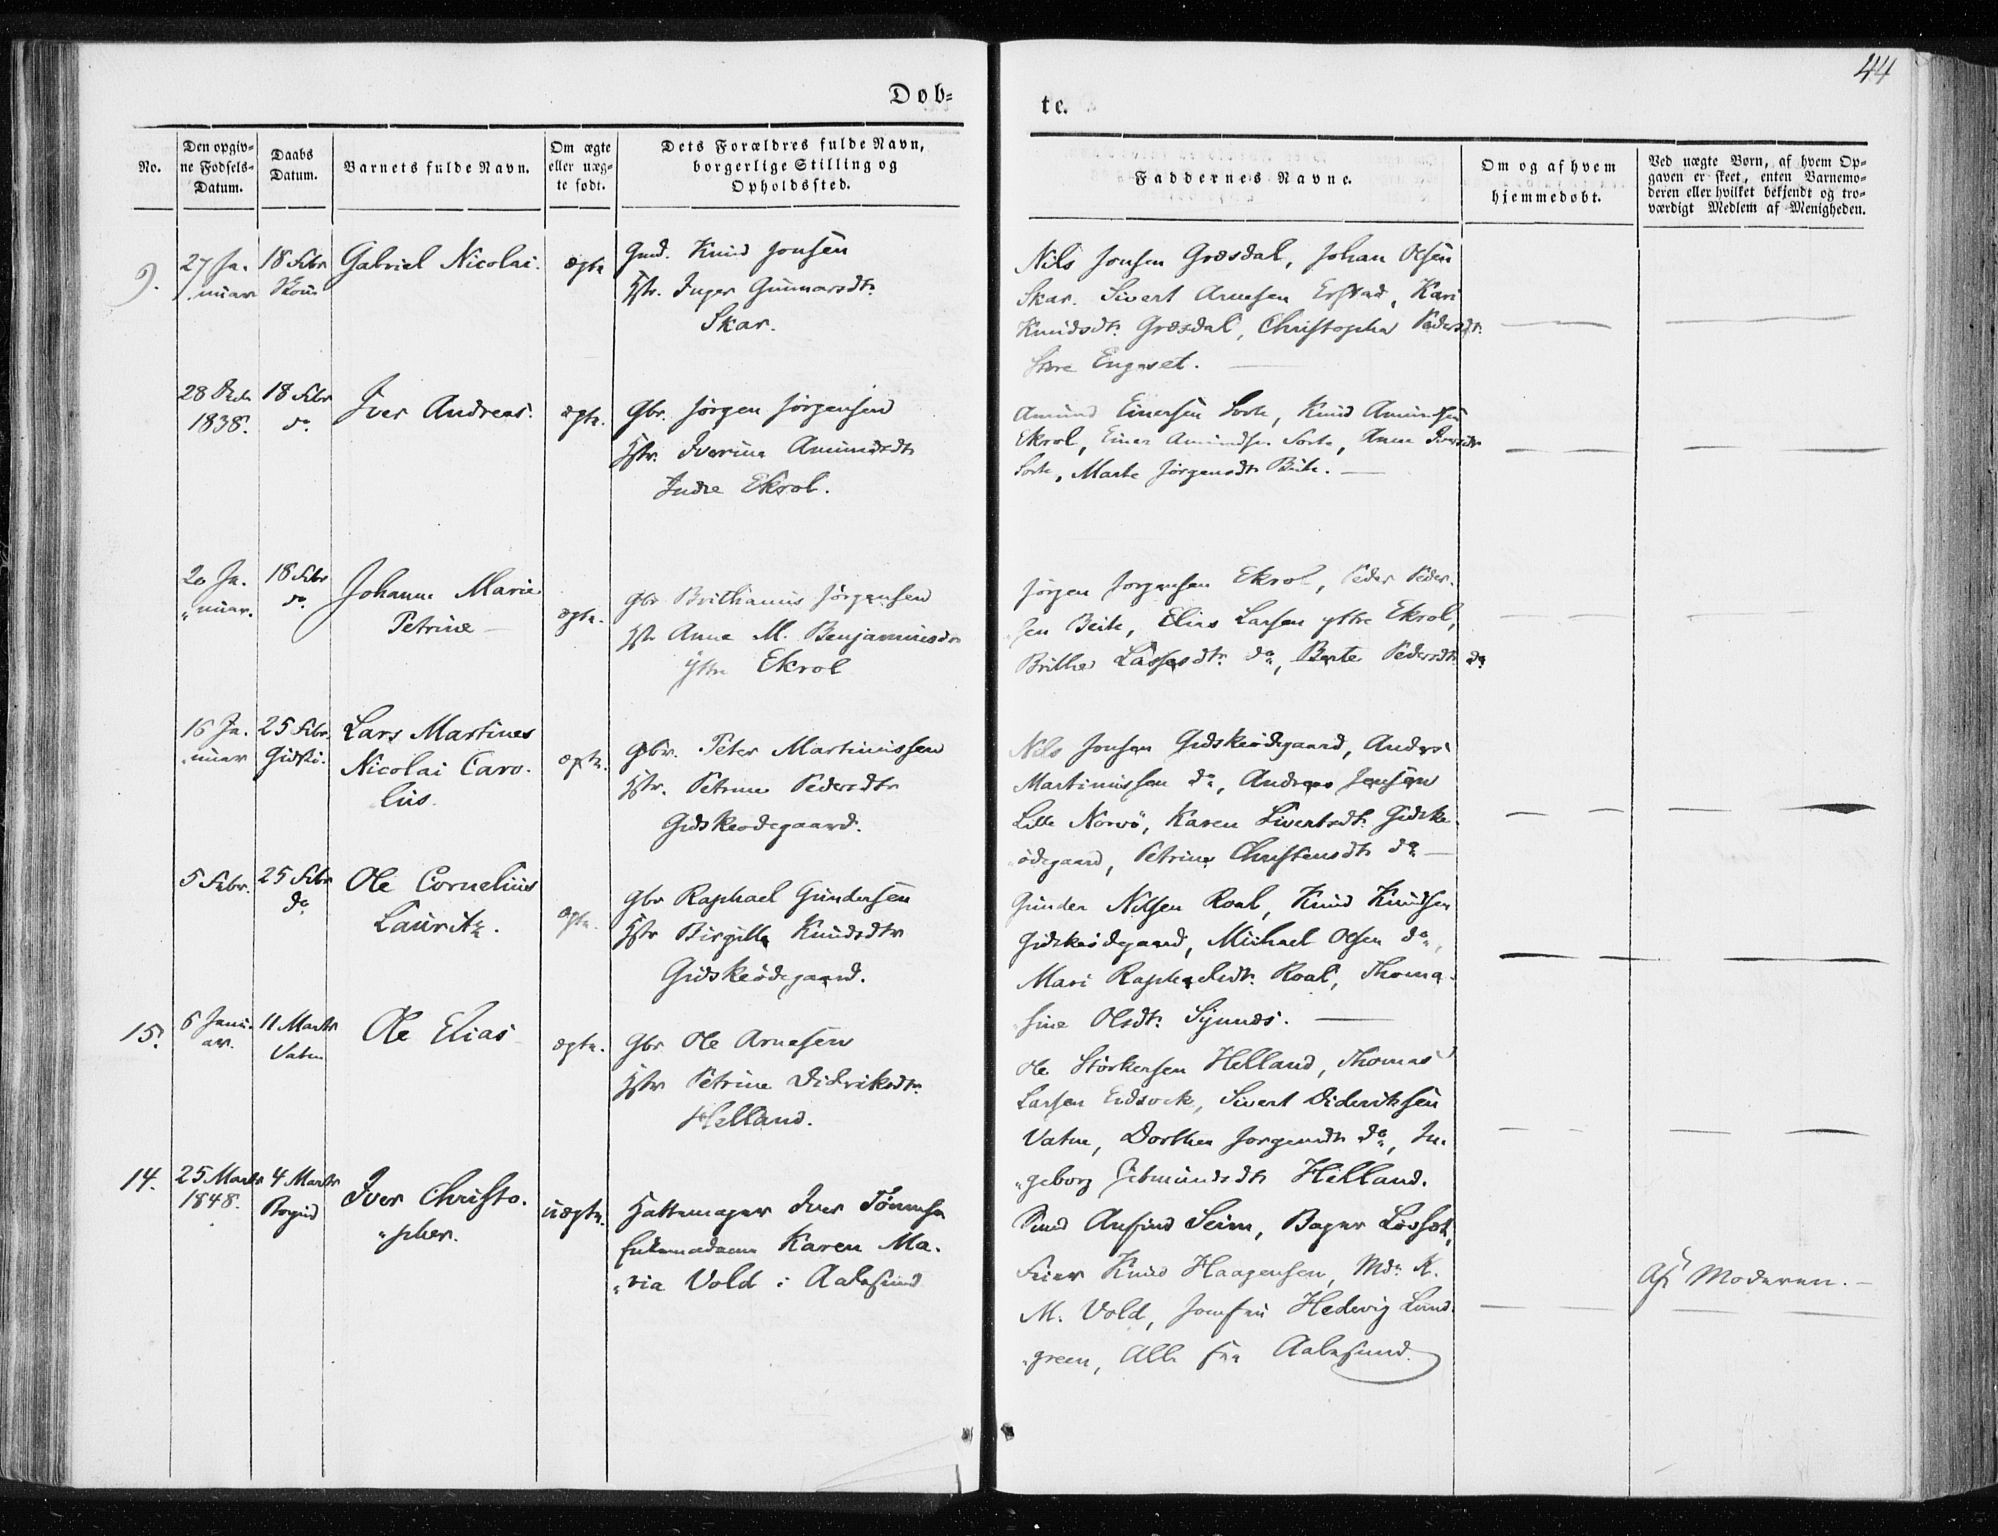 44
Døb=
te.
No.
Den opgiv=
ne Fødsels=
Datum.
Daabs
Datum.
Barnets fulde Navn.
Om ægte
eller uæg=
te født.
Dets Forældres fulde Navn,
borgerlige Stilling og
Opholdssted.
Faddernes Navne.
Om og af hvem
hjemmedøbt.
Ved uægte Børn, af hvem Op=
gaven er skeet, enten Barnemo=
deren eller hvilket bekjendt og tro=
værdigt Medlem af Menigheden.
9.
27 Ja.
nuar
18 Febr
Gabriel Nicolai.
ægte
Gmd. Knud Jonsen
Hstr. Inger Gunnarsdtr.
Skar.
Nils Jonsen Græsdal, Johan Olsen
Skar. Sivert Arnesen Erstad, Kari
Knudsdtr. Græsdal, Christopha Pedersdtr.
Store Engeset. —
28
1838.
18 Febr
do
Iver Andreas.
ægte.
Gbr. Jørgen Jørgensen
Hstr. Iverine Amundsdtr
Indre Ekrol.
Amund Einersen Sorte, Knud Amundsen
Ekrol, Einer Amundsen Sorte, Anne Iversdtr
Sorte, Marte Jørgensdtr Beite. —
20 Ja.
"nuar.
18 Febr
do
Johanne Marie
Petrine —
ægte.
Gbr Brithanus Jørgensen
Hstr Anne M. Benjaminsdr
Yttre Ekrol
Jørgen Jørgensen Ekrol, Peder Peder.
sen Beite, Elias Larsen yttre Ekrol,
Brithe Lassesdtr. do, Berte Pedersdtr. do
16 Ja.
.nuar
25 Febr.
Gidske.
Lars Martines
Nicolai Caro.
lius.
ægte.
Gbr. Peter Martinussen
Hstr. Petrine Pedersdtr
Gidskeødegaard.
Nils Jonsen Gidskeødegaard, Anders
Martinussen do, Andreas Jensen
Lille Norvø, Karen Sivertsdtr. Gidske-
ødegaard, Petrine Christensdtr do —
5 Febr.
25 Febr
do
Ole Cornelius
Lauritz.
ægte.
Gbr Raphael Gundersen
Hstr Birgitte Knudsdtr
Gidskeødegaard.
Gunder Nilsen Roal, Knud Knudsen
Gidskeødegaard, Michael Olsen do,
Mari Raphaelsdtr. Roal, Thoma-
sine Olsdtr. Synnes. —
15.
6 Janu.
ar.
11 Marts
Vatne
Ole Elias
ægte.
Gbr Ole Arnesen
Hstr Petrine Didriksdtr.
Helland.
Ole Størkersen Helland, Thomas
Larsen Eidsvik, Sivert Dideriksen
Vatne, Dorthea Jørgensdtr do, In.
"geborg Helland.
14.
25 Marts
1848.
4 Marts
Borgund
Iver Christo.
"pher.
uægte.
Hattemager Iver Tønnesen
Enkemadame Karen Ma.
"ria Vold i Aalesund
Smed Anfind Seim, Bager Løvset,
Feier Knud Haagensen, Md. K.
M. Vold, Jomfru Hedevig Lund.
"green, Alle fra Aalesund.
Af Moderen. —